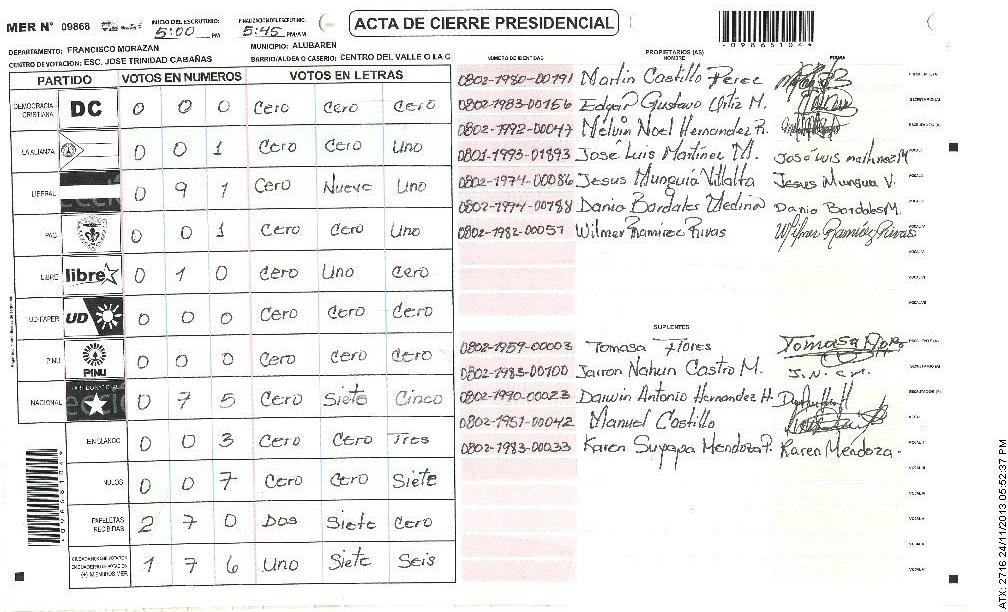 MER N° 09868
INICIO DEL ESCRUTINIO: 5:00 PM
FINALIZACION ESCRUTINIO: 5:45 PM/AM
ACTA DE CIERRE PRESIDENCIAL
09868104
DEPARTAMENTO: FRANCISCO MORAZAN
MUNICIPIO: ALUBAREN
CENTRO DE VOTACION: ESC. JOSE TRINIDAD CABAÑAS
BARRIO/ALDEA O CASERIO: CENTRO DEL VALLE O LA C
PARTIDO VOTOS EN NUMEROS VOTOS EN LETRAS
DEMOCRACIA CRISTIANA DC 0 0 0 Cero Cero Cero
LA ALIANZA 0 0 1 Cero Cero Uno
LIBERAL 0 9 1 Cero Nueve Uno
PAC 0 0 1 Cero Cero Uno
LIBRE libre 0 1 0 Cero Uno Cero
UD-FAPER UD 0 0 0 Cero Cero Cero
PINU PINU 0 0 0 Cero Cero Cero
NACIONAL 0 7 5 Cero Siete Cinco
EN BLANCO 0 0 3 Cero Cero Tres
NULOS 0 0 7 Cero Cero Siete
PAPELETAS RECIBIDAS 2 7 0 Dos Siete Cero
CIUDADANOS QUE VOTARON EN CUADERNO DE VOTACION (+) MIEMBROS MER 1 7 6 Uno Siete Seis
PROPIETARIOS (AS)
NUMERO DE IDENTIDAD NOMBRE FIRMA
0802-1980-00191 Martin Castillo Perez
0802-1983-00156 Edgar Gustavo Ortiz M.
0802-1992-00047 Melvin Noel Hernandez R.
0801-1995-01893 José Luis Martínez M. José Luis Mathinez M
0802-1974-00086 Jesus Munguia Villalta Jesus Mungua V.
0802-1994-00188 Danio Bordales Medina Danio Bordales M.
0802-1982-00057 Wilmer Ramirez Rivas Wilmer Ramirez Rivas
SUPLENTES
0802-1959-00003 Tomasa Flores
0802-1985-00100 Jairon Nahun Castro M. J.N.C.M.
0802-1990-00023 Darwin Antonio Hernandez H.
0802-1957-00042 Manuel Castillo
0802-1983-00033 Karen Suyapa Mendoza P. Karen Mendoza.
09868104
ATX: 2716 24/11/2013 05:52:37 PM